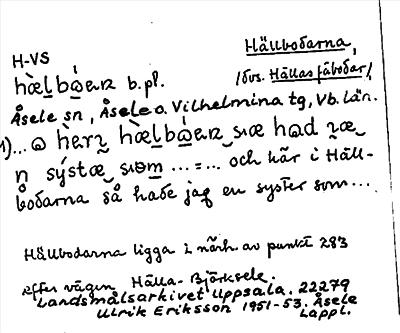 H-VS
Hällbodarna,
hæ̀l̠bὼɐɴ b.pl.
/dvs. Hällas fäbodar/,
Åsele sn, Åsele o. Vilhelmina tg, Vb. län.
1)... och här i Häll-
bodarna så hade jag en syster som ...
Hällbodarna ligga i närh. av punkt 283
efter vägen Hälla-Björksele.
Landsmålsarkivet Uppsala. 22279
Ulrik Eriksson 1951-53. Åsele
Lappl.